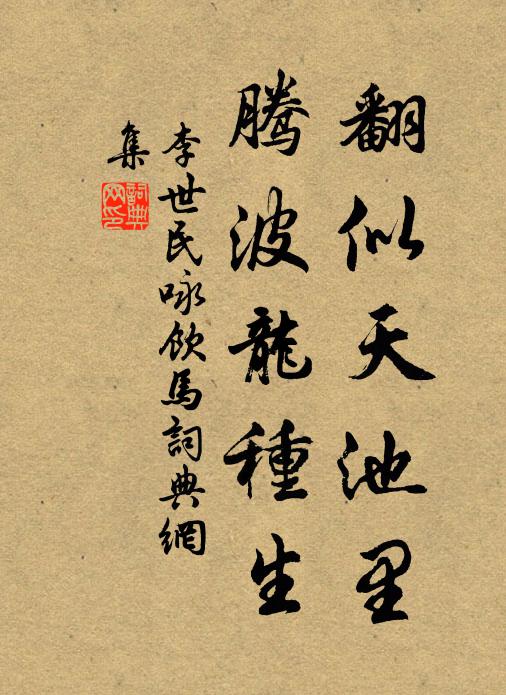 翻似天池里
騰波龍種生
李世民咏飲馬詞典網
集
詞典網印